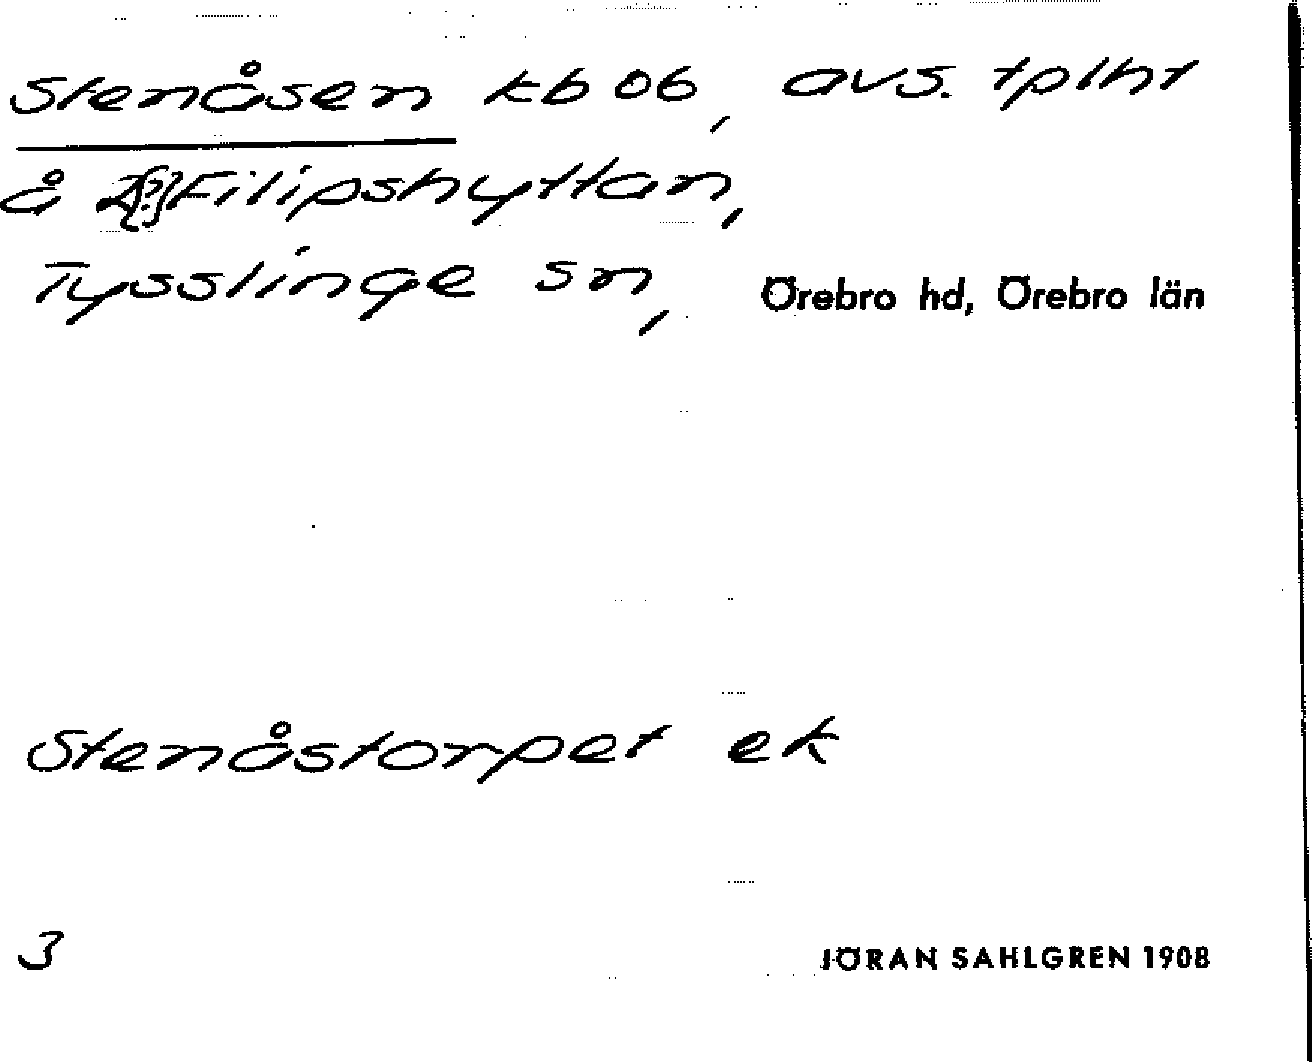 Stenåsen kb 06, avs. tplht
å Filipshyttan,
Tysslinge sn, Örebro hd, Örebro län
Stenåstorpet ek
3
JÖRAN SAHLGREN 1908